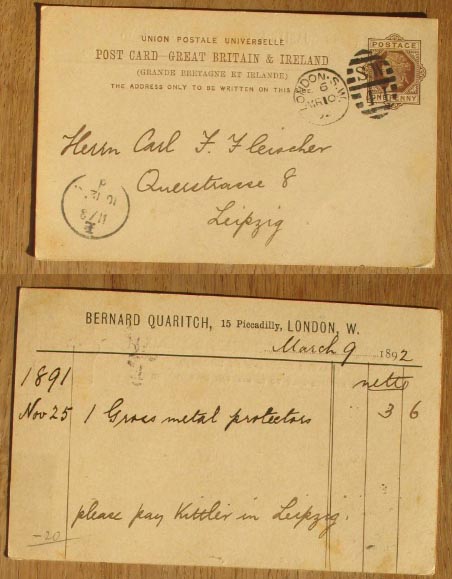 UNION POSTALE UNIVERSELLE
POST CARD–GREAT BRITAIN & IRELAND
(GRANDE BRETAGNE ET IRLANDE)
THE ADDRESS ONLY TO BE WRITTEN ON THIS
POSTAGE
ONE PENNY
LONDON·S.W.
6
MR 10
S.W.
Herrn Carl F. Fleischer
Querstrasse 8
Leipzig
BERNARD QUARITCH, 15 Piccadilly, LONDON, W.
March 9 1892
1891 netto
Nov 25 1 Gross metal protectors 3 6
please pay Kittler in Leipzig.
-20